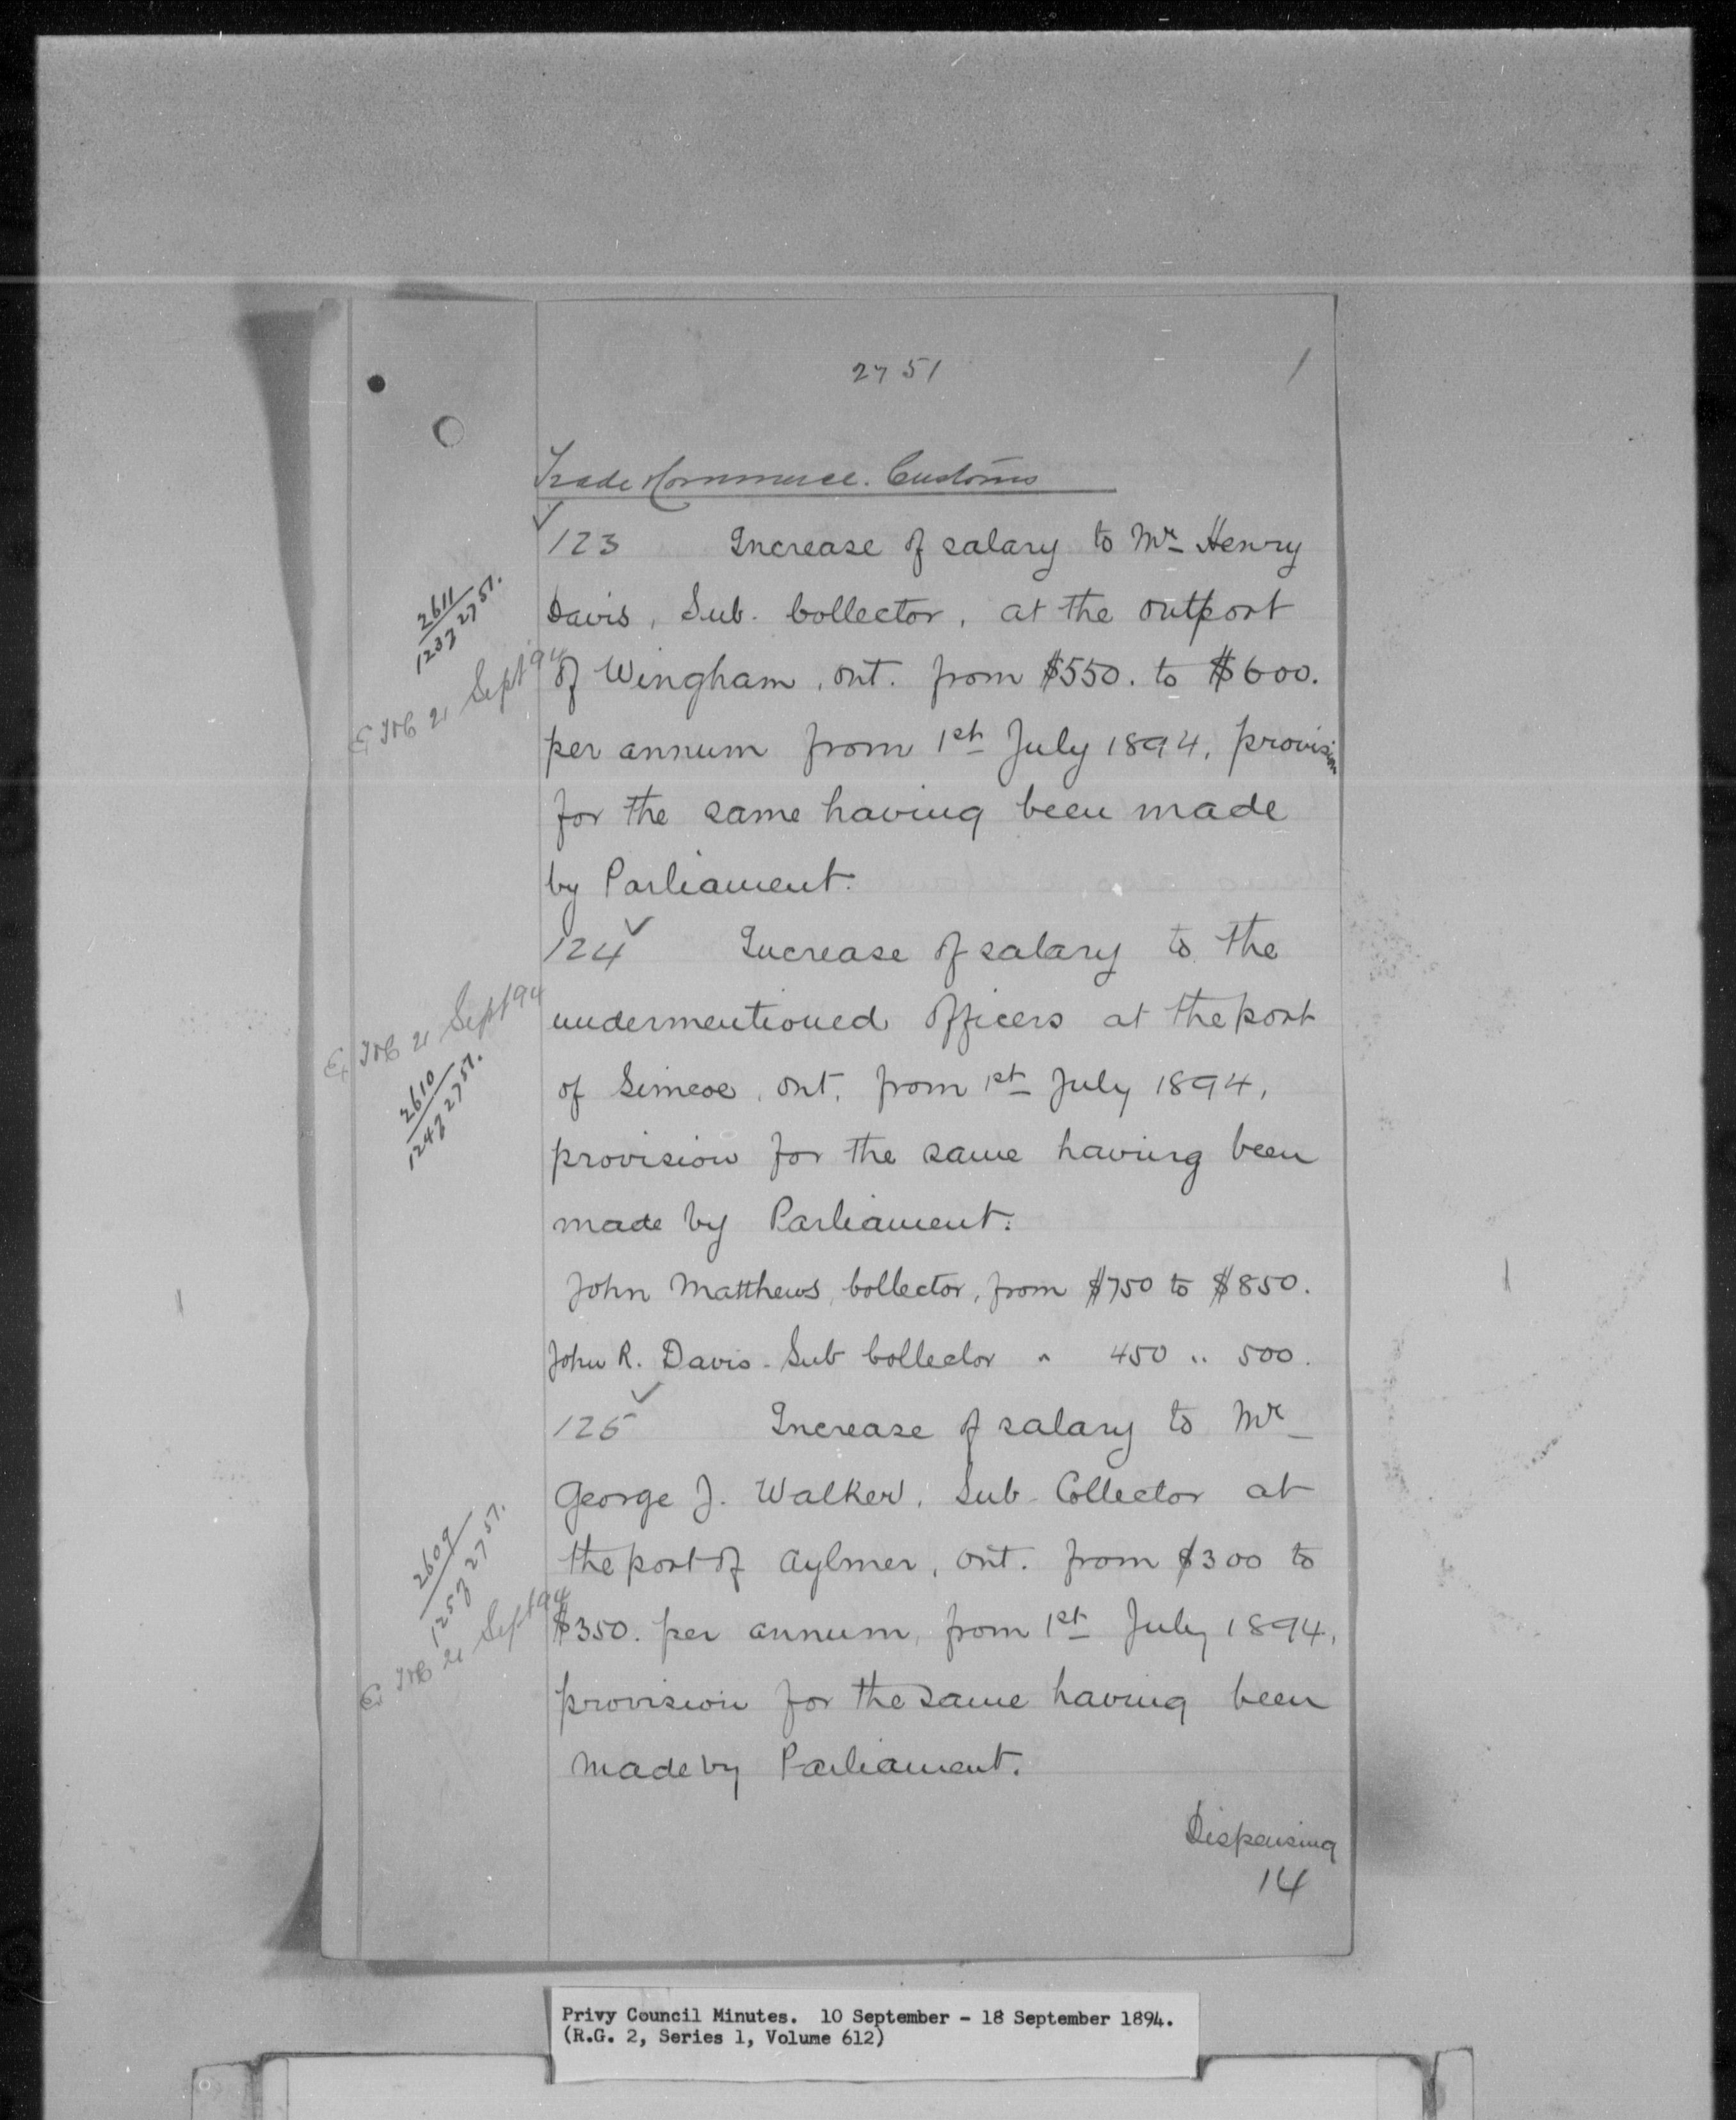 2751
1
Trade & Commerce. Customs
✓
123 Increase of salary to Mr Henry
Davis, Sub. Collector, at the outport
of Wingham, Ont. from $550. to $600.
per annum from 1st July 1894, provision
for the same having been made
by Parliament.
2611
123 2751.
21 Sept 94
124 ✓ Increase of salary to the
undermentioned officers at the port
of Simcoe, Ont. from 1st July 1894,
provision for the same having been
made by Parliament.
21 Sept 94
2610
124 2751.
John Matthews, Collector, from $750 to $850.
John R. Davis - Sub Collector " 450 " 500.
125 ✓ Increase of salary to Mr
George J. Walker, Sub-Collector at
the port of Aylmer, Ont. from $300 to
$350. per annum, from 1st July 1894,
provision for the same having been
made by Parliament.
2609
125 2751.
21 Sept 94
Dispensing
14
Privy Council Minutes. 10 September - 18 September 1894.
(R.G. 2, Series 1, Volume 612)